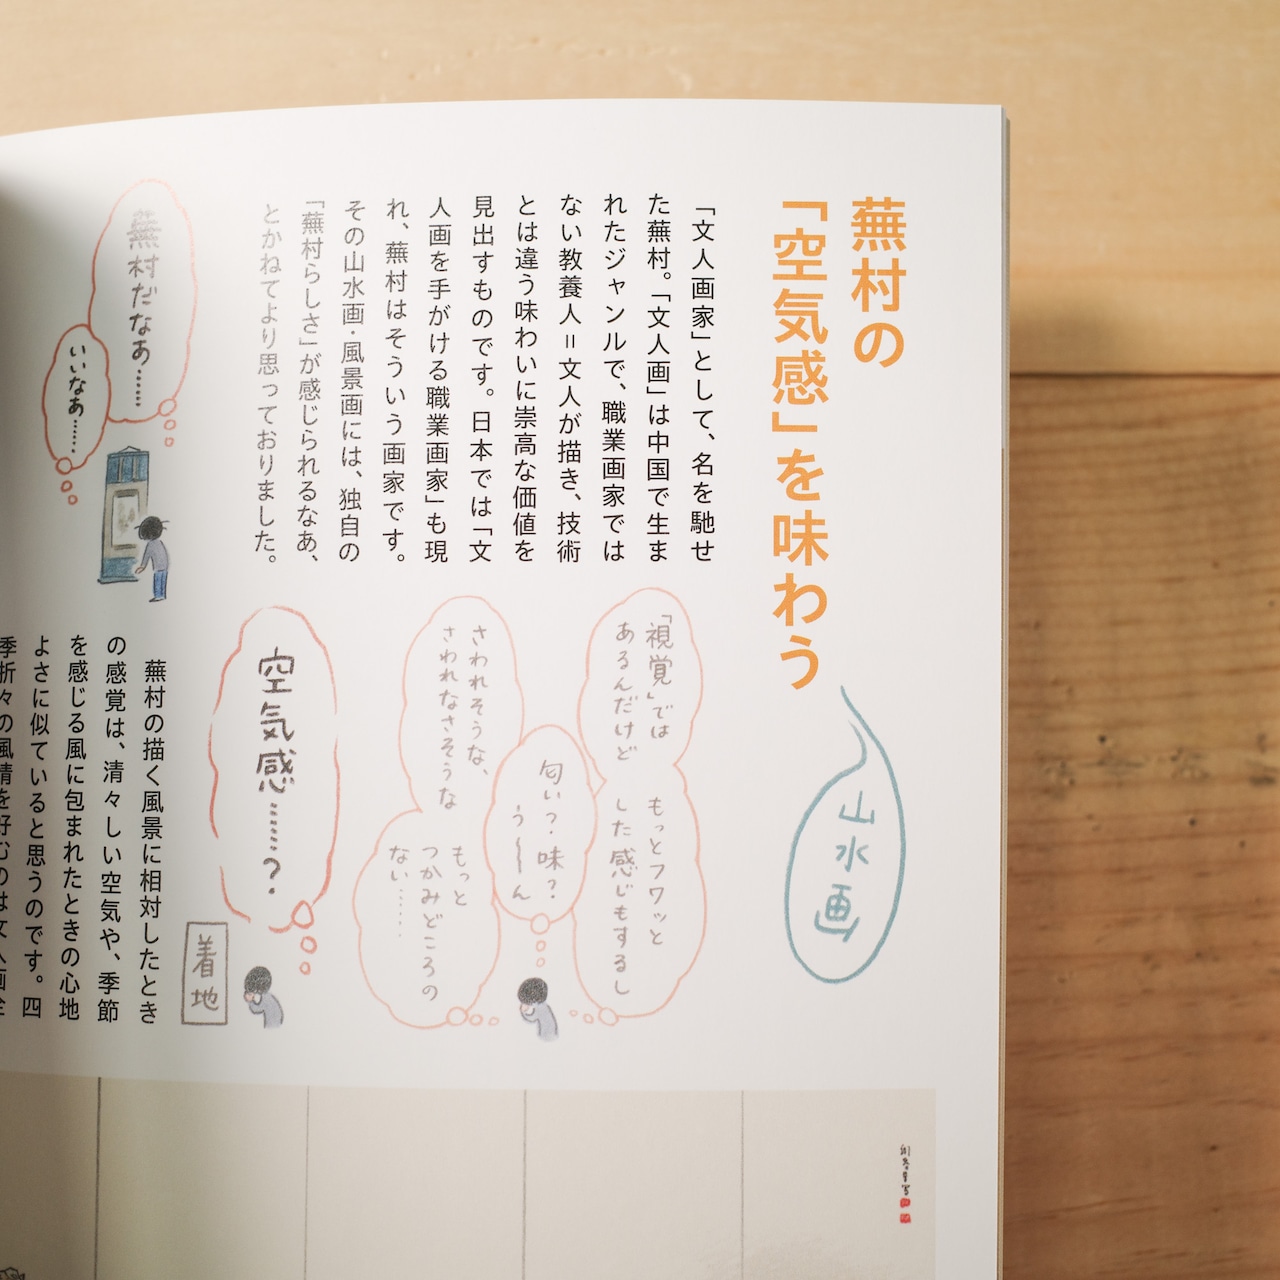 蕪村の
「空気感」を味わう
山水画
「文人画家」として、名を馳せ
た蕪村。「文人画」は中国で生ま
れたジャンルで、職業画家では
ない教養人＝文人が描き、技術
とは違う味わいに崇高な価値を
見出すものです。日本では「文
人画を手がける職業画家」も現
れ、蕪村はそういう画家です。
その山水画・風景画には、独自の
「蕪村らしさ」が感じられるなあ、
とかねてより思っておりました。
蕪村だなあ……
いいなあ……
「視覚」では
あるんだけど
もっとフワッと
した感じもするし
匂い？味？
う〜〜ん
さわれそうな、
さわれなさそうな
もっと
つかみどころの
ない……
空気感……？
着地
蕪村の描く風景に相対したとき
の感覚は、清々しい空気や、季節
を感じる風に包まれたときの心地
よさに似ていると思うのです。四
季折々の風情を好むのは文人画全